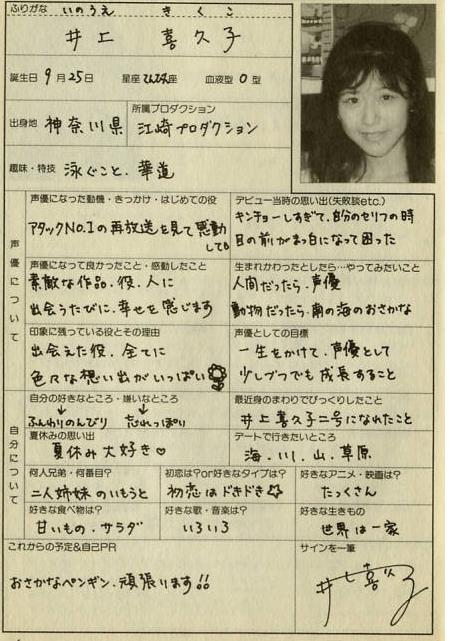 ふりがな いのうえ きくこ
井上 喜久子
誕生日 9月25日 星座 てんびん座 血液型 O型
出身地 神奈川県
所属プロダクション
江崎プロダクション
趣味・特技 泳ぐこと、華道
声優について
声優になった動機・きっかけ・はじめての役
アタックNO.1の再放送を見て感動
して。
デビュー当時の思い出(失敗談etc.)
キンチョーしすぎて、自分のセリフの時
目の前がまっ白になって困った
声優になって良かったこと・感動したこと
素敵な作品・役・人に
出会うたびに、幸せを感じます
生まれかわったとしたら…やってみたいこと
人間だったら、声優
動物だったら、南の海のおさかな
印象に残っている役とその理由
出会えた役、全てに
色々な想い出がいっぱい
声優としての目標
一生をかけて、声優として
少しづつでも成長すること
自分について
自分の好きなところ・嫌いなところ
ふんわりのんびり 忘れっぽい
最近身のまわりでびっくりしたこと
井上喜久子二号になれたこと
夏休みの思い出
夏休み大好き♡
デートで行きたいところ
海・川・山・草原
何人兄弟・何番目?
二人姉妹のいもうと
初恋は?or好きなタイプは?
初恋はドキドキ☆
好きなアニメ・映画は?
たっくさん
好きな食べ物は?
甘いもの・サラダ
好きな歌・音楽は?
いろいろ
好きな生きもの
世界は一家
これからの予定&自己PR
おさかなペンギン、頑張ります!!
サインを一筆
井上喜久子